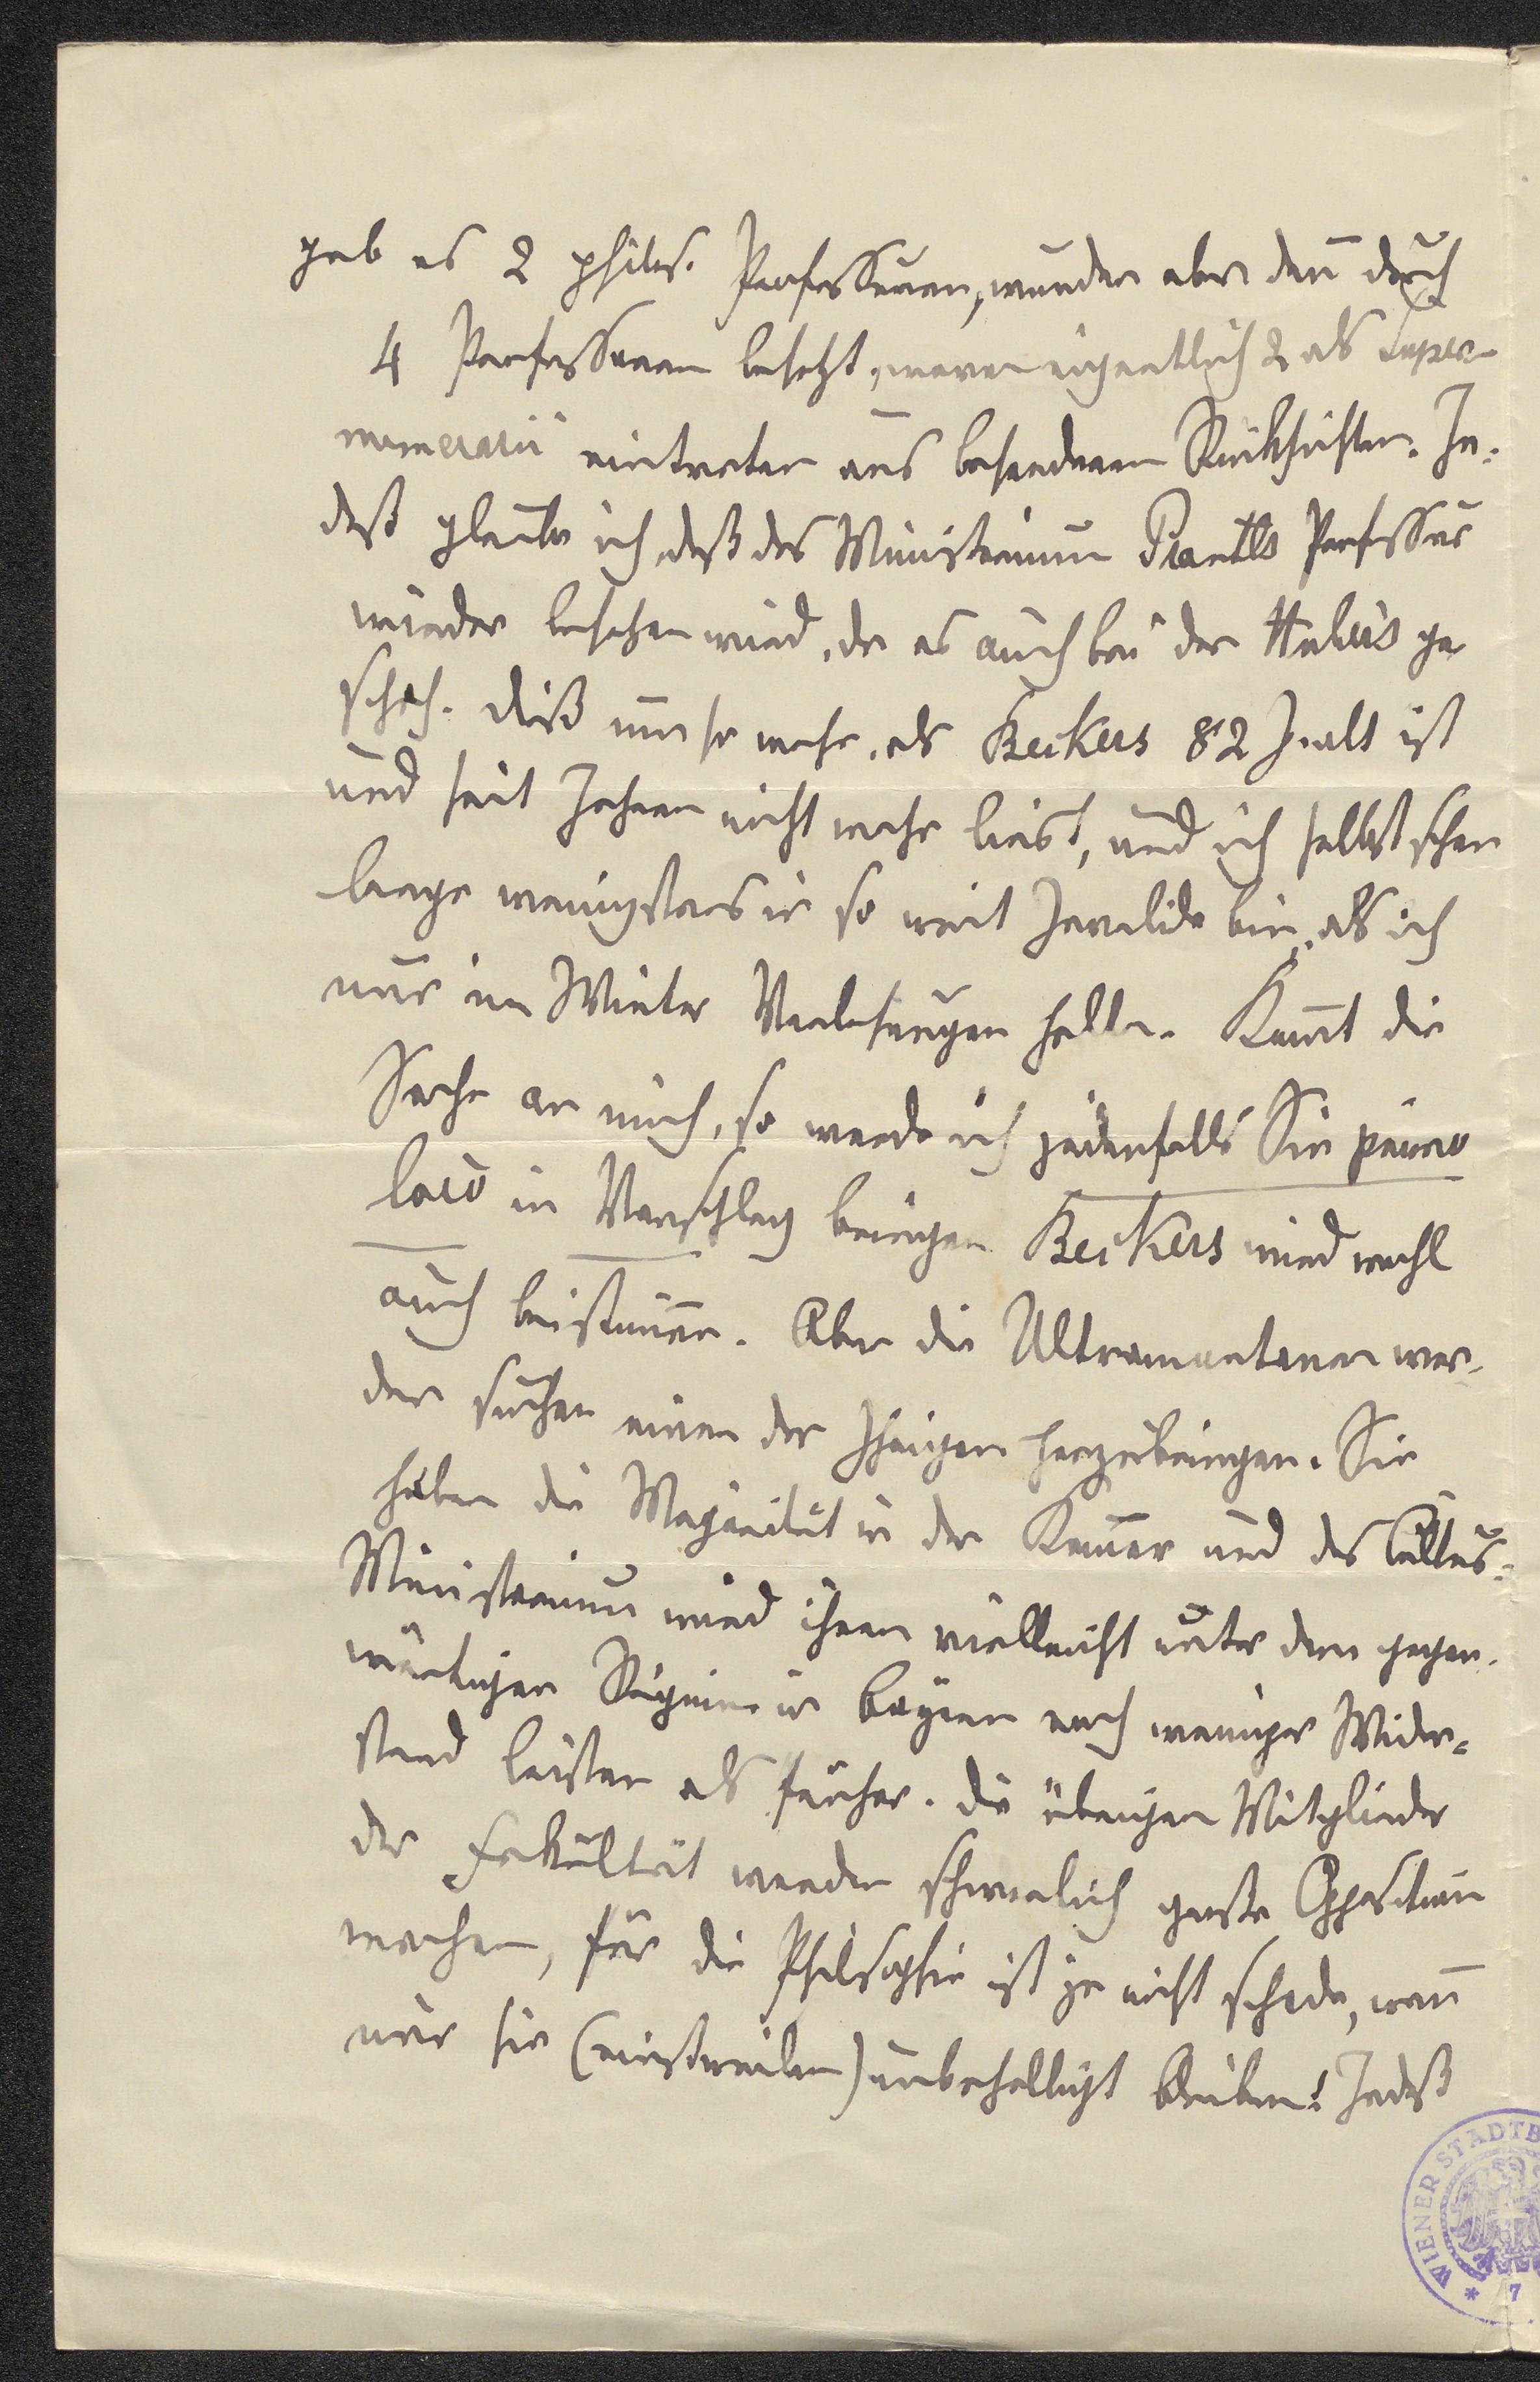 gab es 2 philos. Professuren, wurden aber dan̅ durch
4 Professoren besetzt, wovon eigentlich 2 als Super-
numerarii eintreten aus besonderen Rücksichten. In-
deß glaube ich, daß das Ministerium Prantls Professur
wieder besetzen wird, da es auch bei der Hubers ge-
schah. Dieß um so mehr, als Beckers 82 J. alt ist
und seit Jahren nicht mehr liest, und ich selbst schon
lange wenigstens in so weit Invalide bin, als ich
nur im Winter Vorlesungen halte. Kom̅t die
Sache an mich, so werde ich jedenfalls Sie primo
loco in Vorschlag bringen. Beckers wird wohl
auch beistim̅en. Aber die Ultramontanen wer-
den suchen einen der Ihrigen herzubringen. Sie
haben die Majorität in der Kam̅er und das Cultus-
Ministerium wird ihnen vielleicht unter dem gegen-
wärtigen Regime in Bayern noch weniger Wider-
stand leisten als früher. Die übrigen Mitglieder
der Fakultät werden schwerlich große Opposition
machen, für die Philosophie ist ja nicht schade, wen̅
nur sie (einstweilen) unbehelligt bleiben! Indeß
WIENER STADTB
* 7